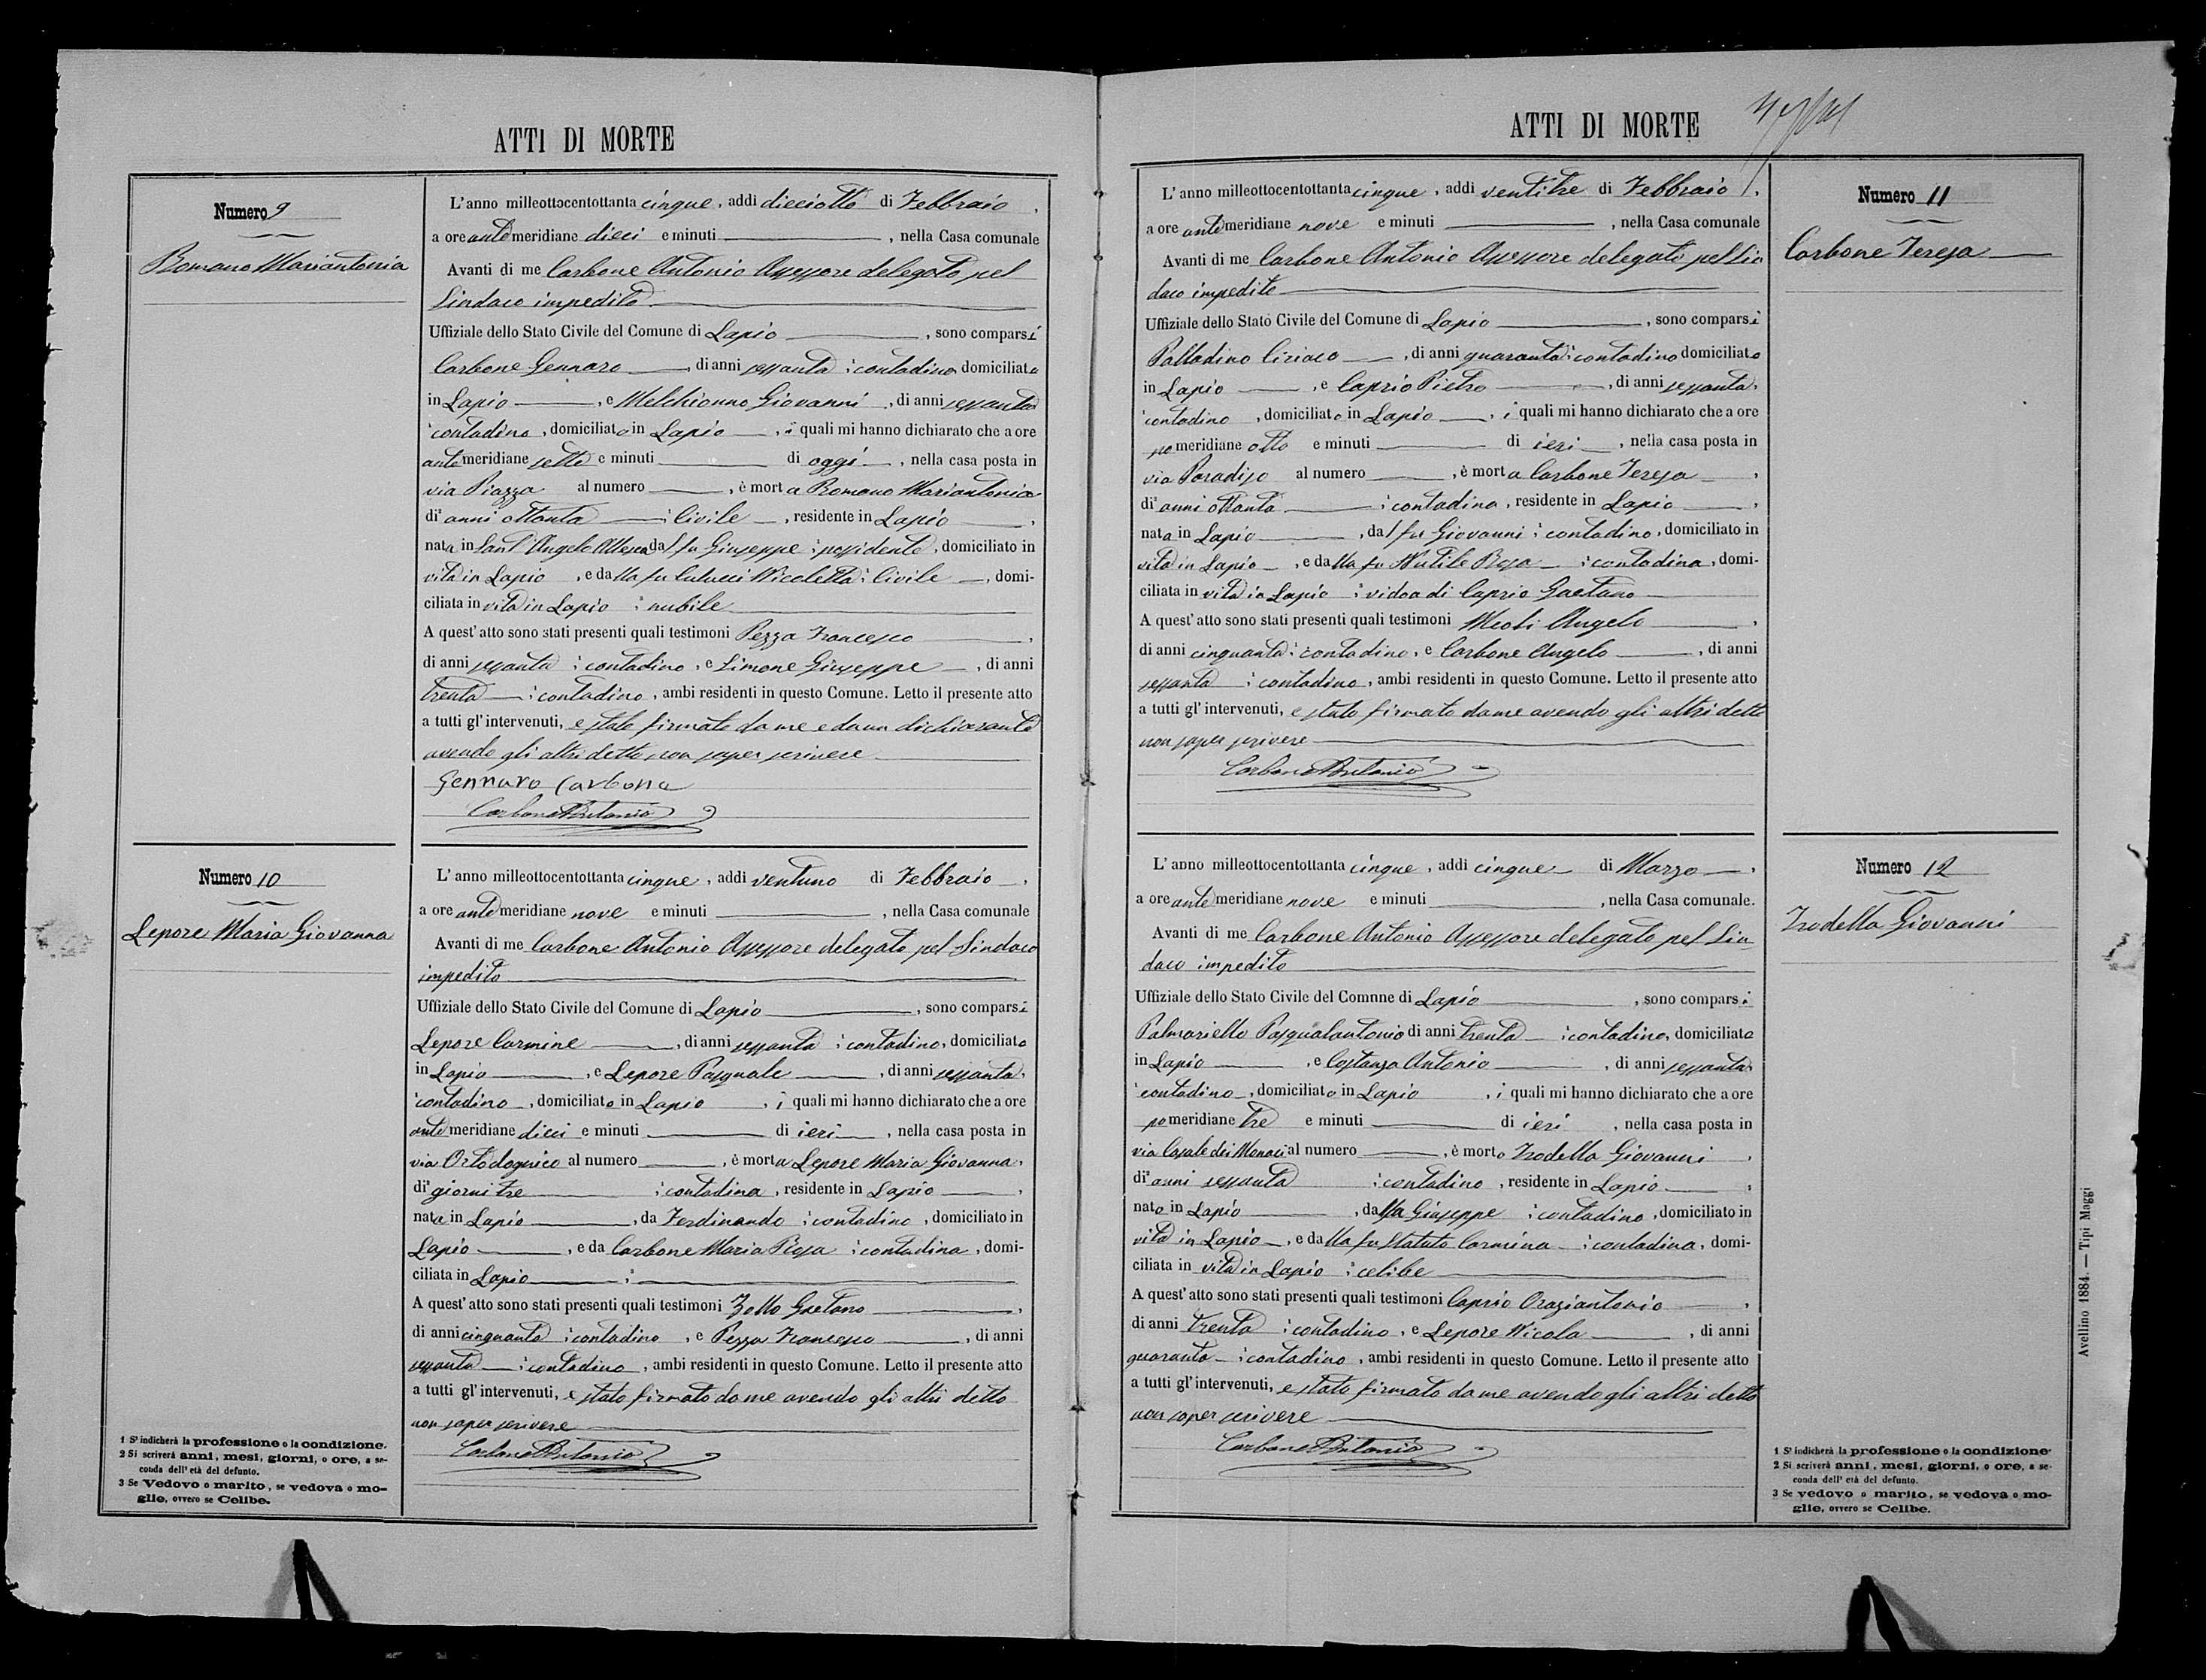 ATTI DI MORTE
Numero 9
Romano Mariantonia
L'anno milleottocentottanta cinque, addì dieciotto di Febbraio,
a ore antemeridiane dieci e minuti, nella Casa comunale
Avanti di me Carbone Antonio Assessore delegato pel
Sindaco impedito
Uffiziale dello Stato Civile del Comune di Lapio, sono comparsi
Carbone Gennaro, di anni sessanta contadino domiciliato
in Lapio, e Melchionno Giovanni, di anni sessanta
contadino, domiciliato in Lapio, i quali mi hanno dichiarato che a ore
antemeridiane sette e minuti di oggi, nella casa posta in
via Piazza al numero, è morta Romano Mariantonia
di anni ottanta Civile, residente in Lapio,
nata in Sant'Angelo dal fu Giuseppe possidente, domiciliato in
vita in Lapio, e dalla fu Nicoletta Civile, domi-
ciliata in vita in Lapio nubile
A quest'atto sono stati presenti quali testimoni Pezza Francesco,
di anni sessanta contadino, e Simone Giuseppe, di anni
trenta contadino, ambi residenti in questo Comune. Letto il presente atto
a tutti gl'intervenuti, e stato firmato da me e da un dichiarante
avendo gli altri detto non saper scrivere
Gennaro Carbone
Carbone Antonio
Numero 10
Lepore Maria Giovanna
L'anno milleottocentottanta cinque, addì ventuno di Febbraio,
a ore antemeridiane nove e minuti, nella Casa comunale
Avanti di me Carbone Antonio Assessore delegato pel Sindaco
impedito
Uffiziale dello Stato Civile del Comune di Lapio, sono comparsi
Lepore Carmine, di anni sessanta contadino, domiciliato
in Lapio, e Lepore Pasquale, di anni sessanta,
contadino, domiciliato in Lapio, i quali mi hanno dichiarato che a ore
antemeridiane dieci e minuti di ieri, nella casa posta in
via al numero, è morta Lepore Maria Giovanna,
di giorni tre contadina, residente in Lapio,
nata in Lapio, da Ferdinando contadino, domiciliato in
Lapio, e da Carbone Maria Rosa contadina, domi-
ciliata in Lapio
A quest'atto sono stati presenti quali testimoni Zollo Gaetano,
di anni cinquanta contadino, e Pezza Francesco, di anni
sessanta contadino, ambi residenti in questo Comune. Letto il presente atto
a tutti gl'intervenuti, e stato firmato da me avendo gli altri detto
non saper scrivere
Carbone Antonio
1 S'indicherà la professione o la condizione.
2 Si scriverà anni, mesi, giorni, o ore, a se-
conda dell'età del defunto.
3 Se Vedovo o marito, se vedova o mo-
glie, ovvero se Celibe.
ATTI DI MORTE
L'anno milleottocentottanta cinque, addì ventitre di Febbraio,
a ore antemeridiane nove e minuti, nella Casa comunale
Avanti di me Carbone Antonio Assessore delegato pel Sin
daco impedito
Uffiziale dello Stato Civile del Comune di Lapio, sono comparsi
Palladino Ciriaco, di anni quaranta contadino domiciliato
in Lapio, e Caprio Pietro, di anni sessanta,
contadino, domiciliato in Lapio, i quali mi hanno dichiarato che a ore
pomeridiane otto e minuti di ieri, nella casa posta in
via Paradiso al numero, è morta Carbone Teresa,
di anni ottanta contadina, residente in Lapio,
nata in Lapio, dal fu Giovanni contadino, domiciliato in
vita in Lapio, e dalla fu Rosa contadina, domi-
ciliata in vita in Lapio vidoa di Caprio Gaetano
A quest'atto sono stati presenti quali testimoni Meoli Angelo,
di anni cinquanta contadino, e Carbone Angelo, di anni
sessanta contadino, ambi residenti in questo Comune. Letto il presente atto
a tutti gl'intervenuti, e stato firmato da me avendo gli altri detto
non saper scrivere
Carbone Antonio
Numero 11
Carbone Teresa
L'anno milleottocentottanta cinque, addì cinque di Marzo,
a ore antemeridiane nove e minuti, nella Casa comunale.
Avanti di me Carbone Antonio Assessore delegato pel Sin
daco impedito
Uffiziale dello Stato Civile del Comnne di Lapio, sono comparsi
Palmariello Pasqualantonio di anni trenta contadino, domiciliato
in Lapio, e Costanzo Antonio, di anni sessanta
contadino, domiciliato in Lapio, i quali mi hanno dichiarato che a ore
pomeridiane tre e minuti di ieri, nella casa posta in
via Casale dei Monaci al numero, è morto Trodella Giovanni,
di anni sessanta contadino, residente in Lapio,
nato in Lapio, dal fu Giuseppe contadino, domiciliato in
vita in Lapio, e dalla fu Statuto Carmina contadina, domi-
ciliata in vita in Lapio celibe
A quest'atto sono stati presenti quali testimoni Caprio Oraziantonio,
di anni trenta contadino, e Lepore Nicola, di anni
quaranta contadino, ambi residenti in questo Comune. Letto il presente atto
a tutti gl'intervenuti, e stato firmato da me avendo gli altri detto
non saper scrivere
Carbone Antonio
Numero 12
Trodella Giovanni
1 S'indicherà la professione o la condizione
2 Si scriverà anni, mesi, giorni, o ore, a se-
conda dell'età del defunto.
3 Se vedovo o marito, se vedova o mo-
glie, ovvero se Celibe.
Avellino 1884. — Tipi Maggi